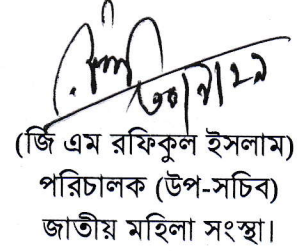 (জি এম রফিকুল ইসলাম)
পরিচালক (উপ-সচিব)
জাতীয় মহিলা সংস্থা।